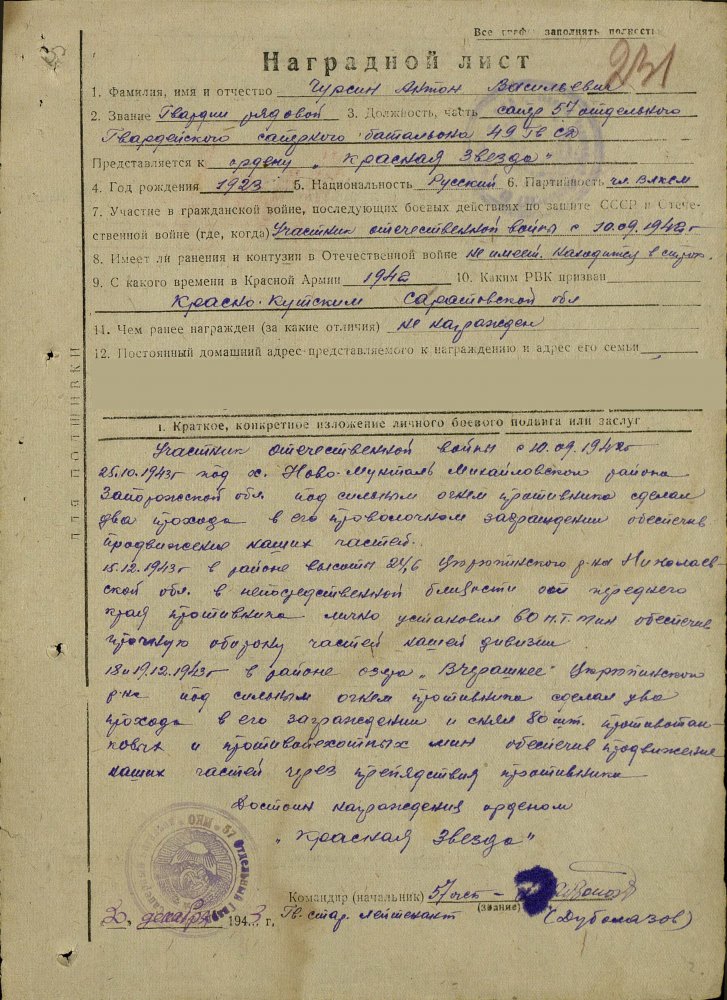 Все графы заполнять полностью
231
Наградной лист
1. Фамилия, имя и отчество Чурсин Антон Васильевич
2. Звание Гвардии рядовой 3. Должность, часть сапер 57 отдельного
Гвардейского саперного батальона 49 Гв СД
Представляется к ордену „Красная Звезда"
4. Год рождения 1923 5. Национальность Русский 6. Партийность чл. ВЛКСМ
7. Участие в гражданской войне, последующих боевых действиях по защите СССР и Отече-
ственной войне (где, когда) Участник отечественной войны с 10.09.1942г
8. Имеет ли ранения и контузии в Отечественной войне не имеет. Находится в строю.
9. С какого времени в Красной Армии 1942 10. Каким РВК призван
Красно-Кутским Саратовской обл
11. Чем ранее награжден (за какие отличия) не награжден
12. Постоянный домашний адрес представляемого к награждению и адрес его семьи
ДЛЯ ПОДШИВКИ
I. Краткое, конкретное изложение личного боевого подвига или заслуг
Участник отечественной войны с 10.09.1942г
25.10.1943г под х. Ново-Мунталь Михайловского района
Запорожской обл. под сильным огнем противника сделал
два прохода в его проволочном заграждении обеспечив
продвижение наших частей.
15.12.1943г в районе высоты 24,6 Цюрупинского р-на Николаев-
ской обл. в непосредственной близости от переднего
края противника лично установил 60 п.т. мин обеспечив
прочную оборону частей нашей дивизии
18 и 19.12.1943г в районе озера „Вчерашнее" Цюрупинского
р-на под сильным огнем противника сделал два
прохода в его заграждении и снял 80 шт. противотан-
ковых и противопехотных мин обеспечив продвижение
наших частей через препядствия противника
Достоин награждения орденом
„Красная Звезда"
Командир (начальник) 57 осб -
(звание)
30 декабря 1943 г,
Гв. стар. лейтенант
(Дубомазов)
57 Отдельный